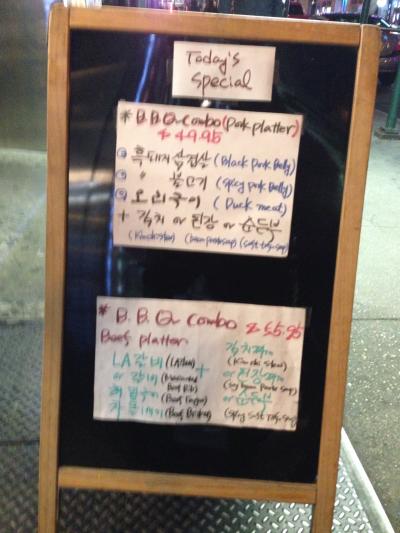 Today's
Special
* B.B.Q combo (Pork platter)
$ 49.95
① 흑돼지 삼겹살 (Black Pork Belly)
② " 불고기 (Spicy Pork Belly)
③ 오리구이 (Duck meat)
+ 김치 or 된장 or 순두부
(Kimchi stew) (bean paste soup) (soft tofu soup)
* B.B.Q combo $ 55.95
Beef platter
LA갈비 (LA
or 갈비 (Marinated
Beef Rib)
혀밑구이 (Beef Tongue)
차돌박이 (Beef Brisket)
+
김치찌개
(Kimchi stew)
or 된장찌개
(Soy bean paste soup)
or 순두부
(Spicy soft tofu soup)